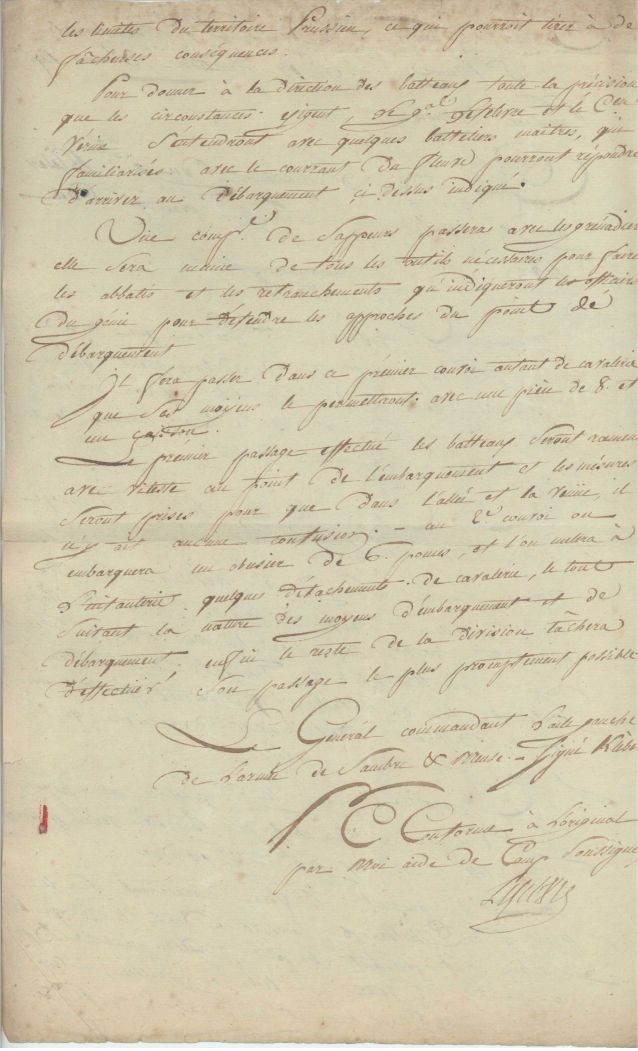 les limites du territoire Prussien, ce qui pourroit tirer à de
fâcheuses conséquences.
Pour donner à la direction des batteaux toute la précision
que les circonstances exigent, le gal Lefebvre et le Cen
Vérine s'entendront avec quelques batteliers maitres, qui
familiarisés avec le courrant du fleuve pourront répondre
d'arriver au débarquement ci dessus indiqué.
Une compe de Sappeurs passeras avec les grenadiers
elle sera munie de tous les outils nécessaires pour faire
les abbatis et les retranchements qu'indiqueront les officiers
du génie pour défendre les approches du point de
débarquement
Il fera passer dans ce premier convoi autant de cavalerie
que ses moyens le permettront; avec une pièce de 8. et
un caisson.
Le prémier passage effectué les batteaux seront ramenés
avec vitesse au point de l'embarquement et les mésures
seront prises pour que dans l'allée et la venüe, il
n'y ait aucune confusion. - au 2e convoi on
embarquera un obusier de 6. pouces, et l'on mêlera à
l'infanterie quelques détachements de cavalerie, le tout
suivant la nature des moyens d'embarquement et de
débarquement, enfin le reste de la division tâchera
d'effectuer son passage le plus promptement possible
Le Général commandant l'aile gauche
de l'armée de Sambre & Meuse. - Signé Kléber
Pr C Conforme à L'original
par moi aide de Camp Soussigné